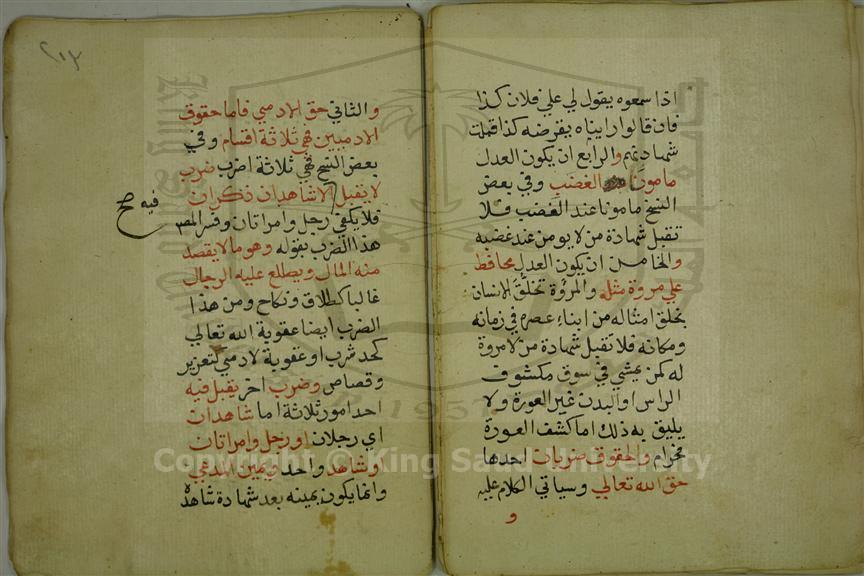 اذا سمعوه يقول لي علي فلان كذا
فان قالوا رايناه يقرضه كذا قبلت
شهادتهم والرابع ان يكون العدل
مامونا الغضب وفي بعض
النسخ مامونا عند الغضب فلا
تقبل شهادة من لا يومن عند غضبه
والخامس ان يكون العدل محافظا
علي مروة مثله والمروة تخلق الانسان
بخلق امثاله من ابناء عصره في زمانه
ومكانه فلا تقبل شهادة من لا مروة
له كمن يمشي في سوق مكشوف
الراس او البدن غير العورة ولا
يليق به ذلك اما كشف العورة
فحرام والحقوق ضربان احدها
حق الله تعالي وسياتي الكلام عليه
و
٢١٣
والثاني حق الادمي فاما حقوق
الادميين فهي ثلاثة اقسام وفي
بعض النسخ فهي ثلاثة اضرب ضرب
لا يقبل الا شاهدان ذكران
فيه صح
فلا يكفي رجل وامراتان وفسر المصـ
هذا الضرب بقوله وهو ما لا يقصد
منه المال ويطلع عليه الرجال
غالبا كطلاق ونكاح ومن هذا
الضرب ايضا عقوبة الله تعالي
كحد شرب او عقوبة لادمي كتعزير
وقصاص وضرب اخر يقبل فيه
احد امور ثلاثة اما شاهدان
اي رجلان او رجل وامراتان
او شاهد واحد ويمين المدعي
وانما يكون يمينه بعد شهادة شاهده
1957
Copyright © King Saud University